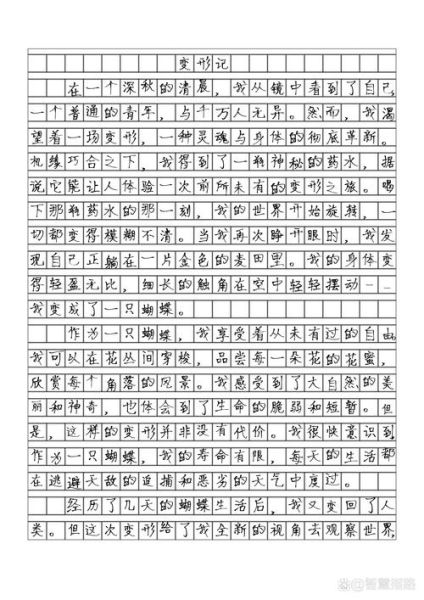 变形记
在一个深秋的清晨，我从镜中看到了自己，
一个普通的青年，与千万人无异。然而，我渴
望着一场变形，一种灵魂与身体的彻底革新。
机缘巧合之下，我得到了一瓶神秘的药水，据
说它能让人体验一次前所未有的变形之旅。喝
下那瓶药水的那一刻，我的世界开始旋转，一
切都变得模糊不清。当我再次睁开眼时，我发
现自己正躺在一片金色的麦田里。我的身体变
得轻盈无比，细长的触角在空中轻轻摆动——
我变成了一只蝴蝶。
作为一只蝴蝶，我享受着从未有过的自由。
我可以在花丛间穿梭，品尝每一朵花的花蜜，
欣赏每个角落的风景。我感受到了大自然的美
丽和神奇，也体会到了生命的脆弱和短暂。但
是，这样的变形并非没有代价。我很快意识到，
作为一只蝴蝶，我的寿命有限，每天的生活都
在逃避天敌的追捕和恶劣的天气中度过。
经历了几天的蝴蝶生活后，我又变回了人
类。但这次变形给了我全新的视角去观察世界，
@智慧指路